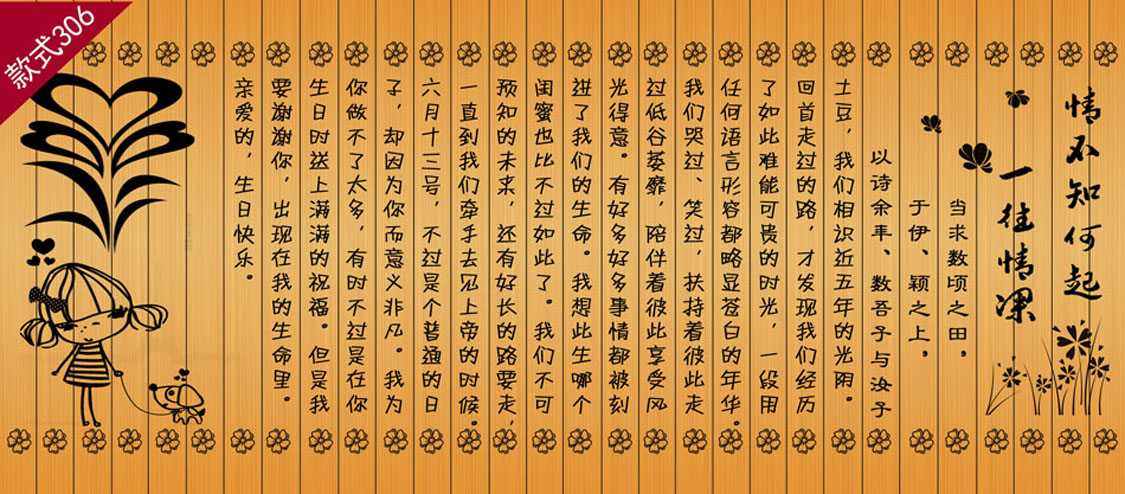 款式306
情不知何起
一往情深
当求数顷之田，
于伊、颖之上，
以诗余丰、数吾子与汝子
土豆，我们相识近五年的光阴。
回首走过的路，才发现我们经历
了如此难能可贵的时光，一段用
任何语言形容都略显苍白的年华。
我们哭过、笑过，扶持着彼此走
过低谷萎靡，陪伴着彼此享受风
光得意。有好多好多事情都被刻
进了我们的生命。我想此生哪个
闺蜜也比不过如此了。我们不可
预知的未来，还有好长的路要走，
一直到我们牵手去见上帝的时候。
六月十三号，不过是个普通的日
子，却因为你而意义非凡。我为
你做不了太多，有时不过是在你
生日时送上满满的祝福。但是我
要谢谢你，出现在我的生命里。
亲爱的，生日快乐。